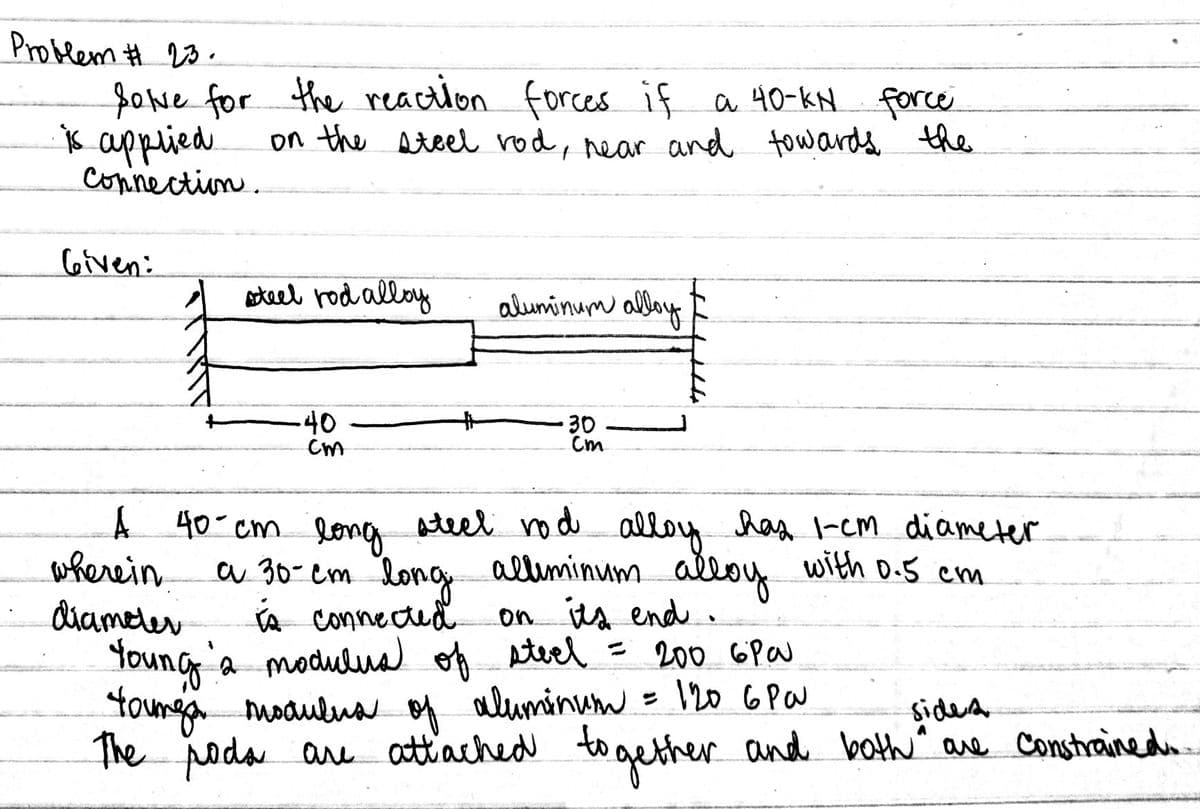 Problem # 23.
Solve for the reaction forces if a 40-KN force
is applied on the steel rod, near and towards the
connection.
Given:
steel rod alloy aluminum alloy
40 cm 30 cm
A 40-cm long steel rod alloy has 1-cm diameter
wherein a 30-cm long alluminum alloy with 0.5 cm
diameter is connected on its end.
Young's modulus of steel = 200 GPa
Young's modulus of aluminum = 120 GPa
The rods are attached together and both sides are constrained.